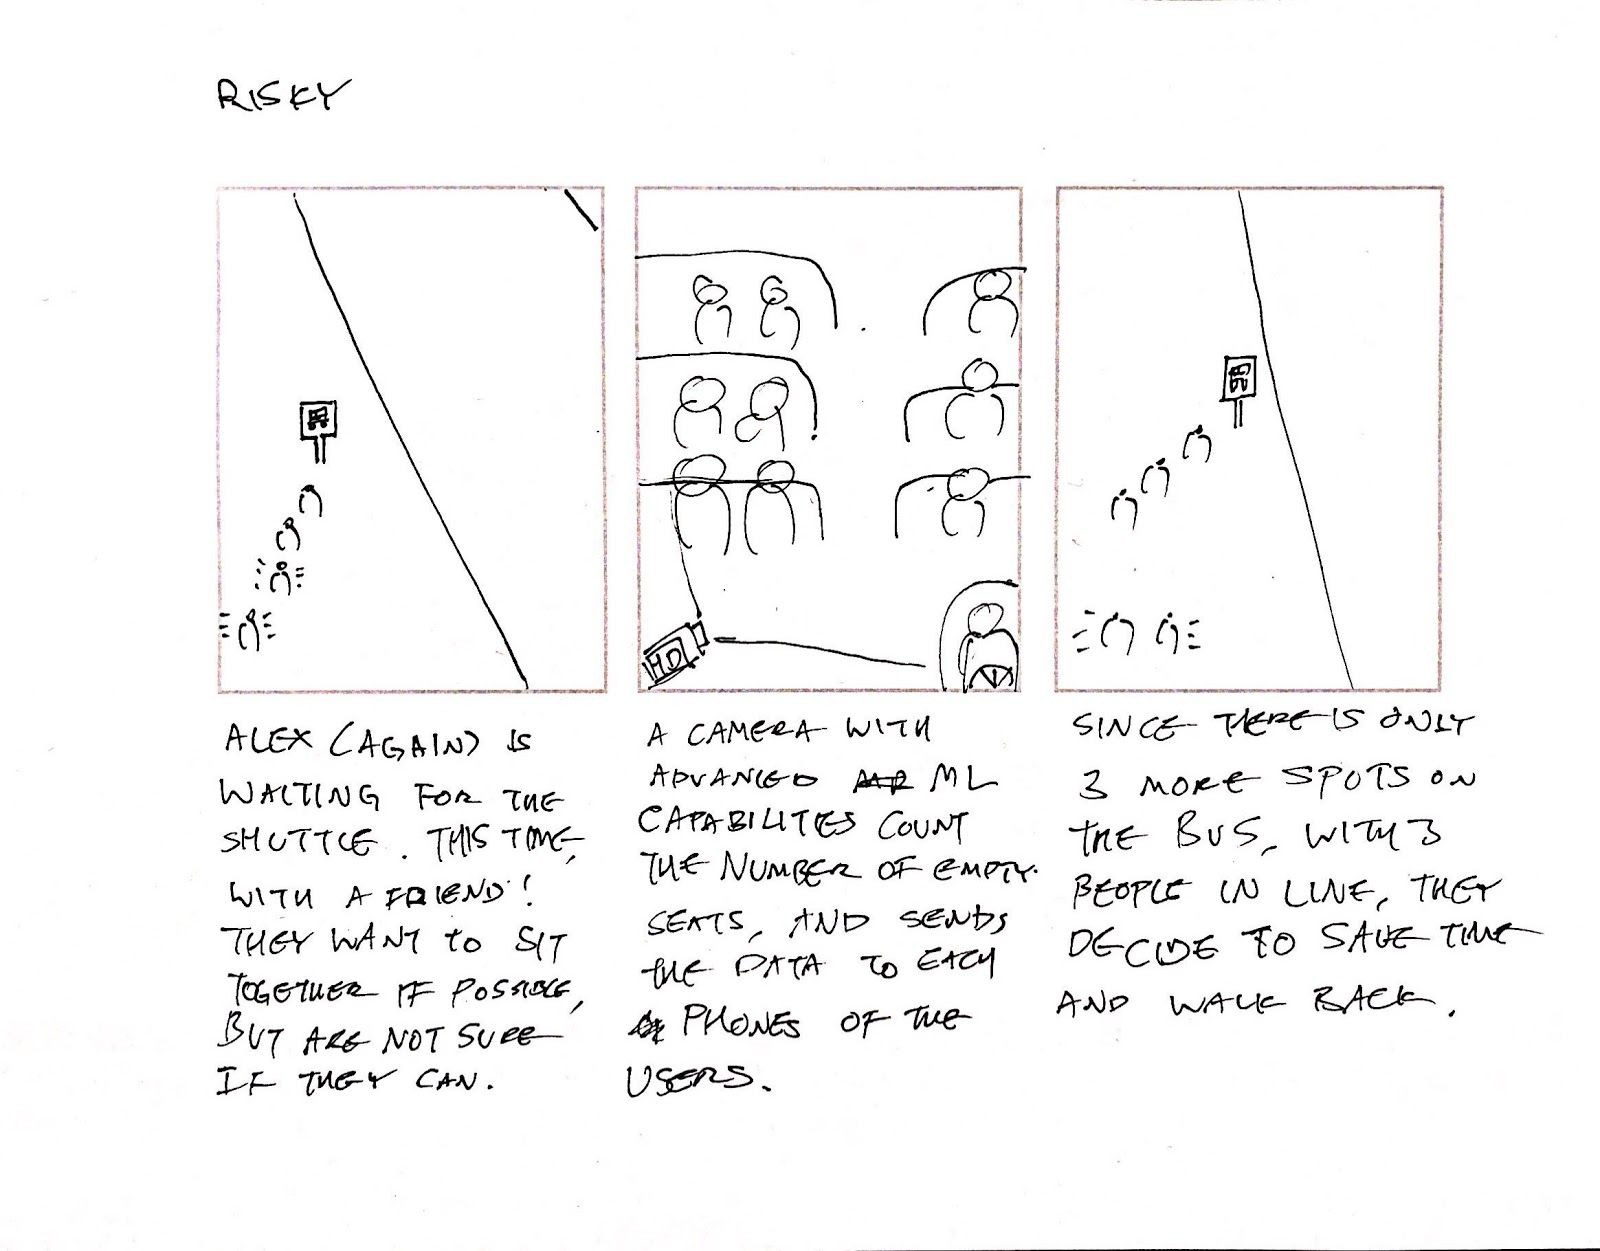 RISKY
ALEX (AGAIN) IS
WAITING FOR THE
SHUTTLE. THIS TIME,
WITH A FRIEND!
THEY WANT TO SIT
TOGETHER IF POSSIBLE,
BUT ARE NOT SURE
IF THEY CAN.
HD
A CAMERA WITH
ADVANCED ML
CAPABILITIES COUNT
THE NUMBER OF EMPTY
SEATS, AND SENDS
THE DATA TO EACH
PHONES OF THE
USERS.
SINCE THERE IS ONLY
3 MORE SPOTS ON
THE BUS, WITH 3
PEOPLE IN LINE, THEY
DECIDE TO SAVE TIME
AND WALK BACK.